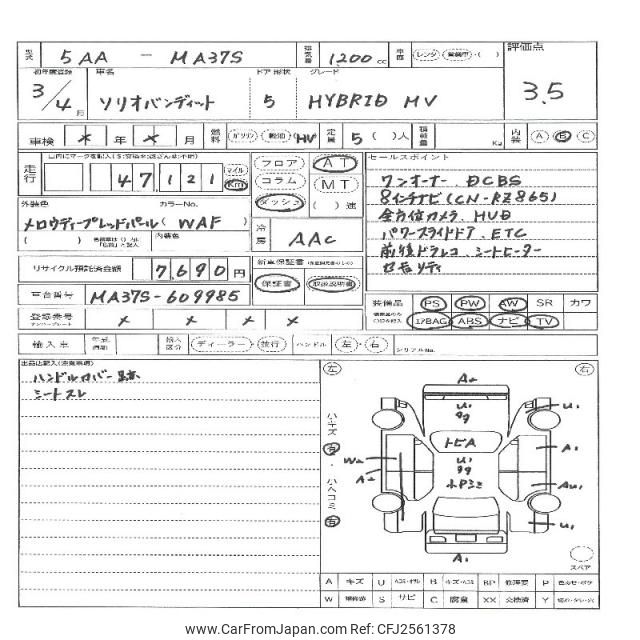 型式 5AA - MA37S 排気量 1200 cc 車歴 レンタ ・ ( ) 評価点
3.5
初年度登録 車名 ドア 形状 グレード
3/4月 ソリオバンディット 5 HYBRID MV
車検 * 年 * 月 燃料 ガソリン ・ 軽油 ・ HV 定員 5 ( )人 積載量 Kg 内装 A B C
走行 47,121 マイル Km
フロア AT
コラム MT
ダッシュ ( )速
外装色 カラーNo.
メロウディープレッドパール ( WAF )
内装色
冷房 AAC
セールスポイント
ワンオーナー DCBS
8インチナビ(CN-RZ865)
全方位カメラ、HUD
パワースライドドア、ETC
前後ドラレコ、シートヒーター
リサイクル預託済金額 7,690 円
新車保証書
保証書 取扱説明書
車台番号 MA37S-609985
装備品 PS PW AW SR カワ
エアBAG ABS ナビ TV
登録番号 * * * *
ナンバープレート
輸入車 年式 輸入区分 ディーラー ・ 並行 ハンドル 左 ・ 右 シリアルNo.
ハンドルカバー跡
シートスレ
左 右
A2
U1
gg
U1
トビA
A1
W2
U1
gg
A2
AU1
ルーフキズ
U1
A1
スペア
A キズ U B BP 修理要 P
W 補修跡 S サビ C 腐食 XX 交換済 Y
© www.CarFromJapan.com - CFJ2561378